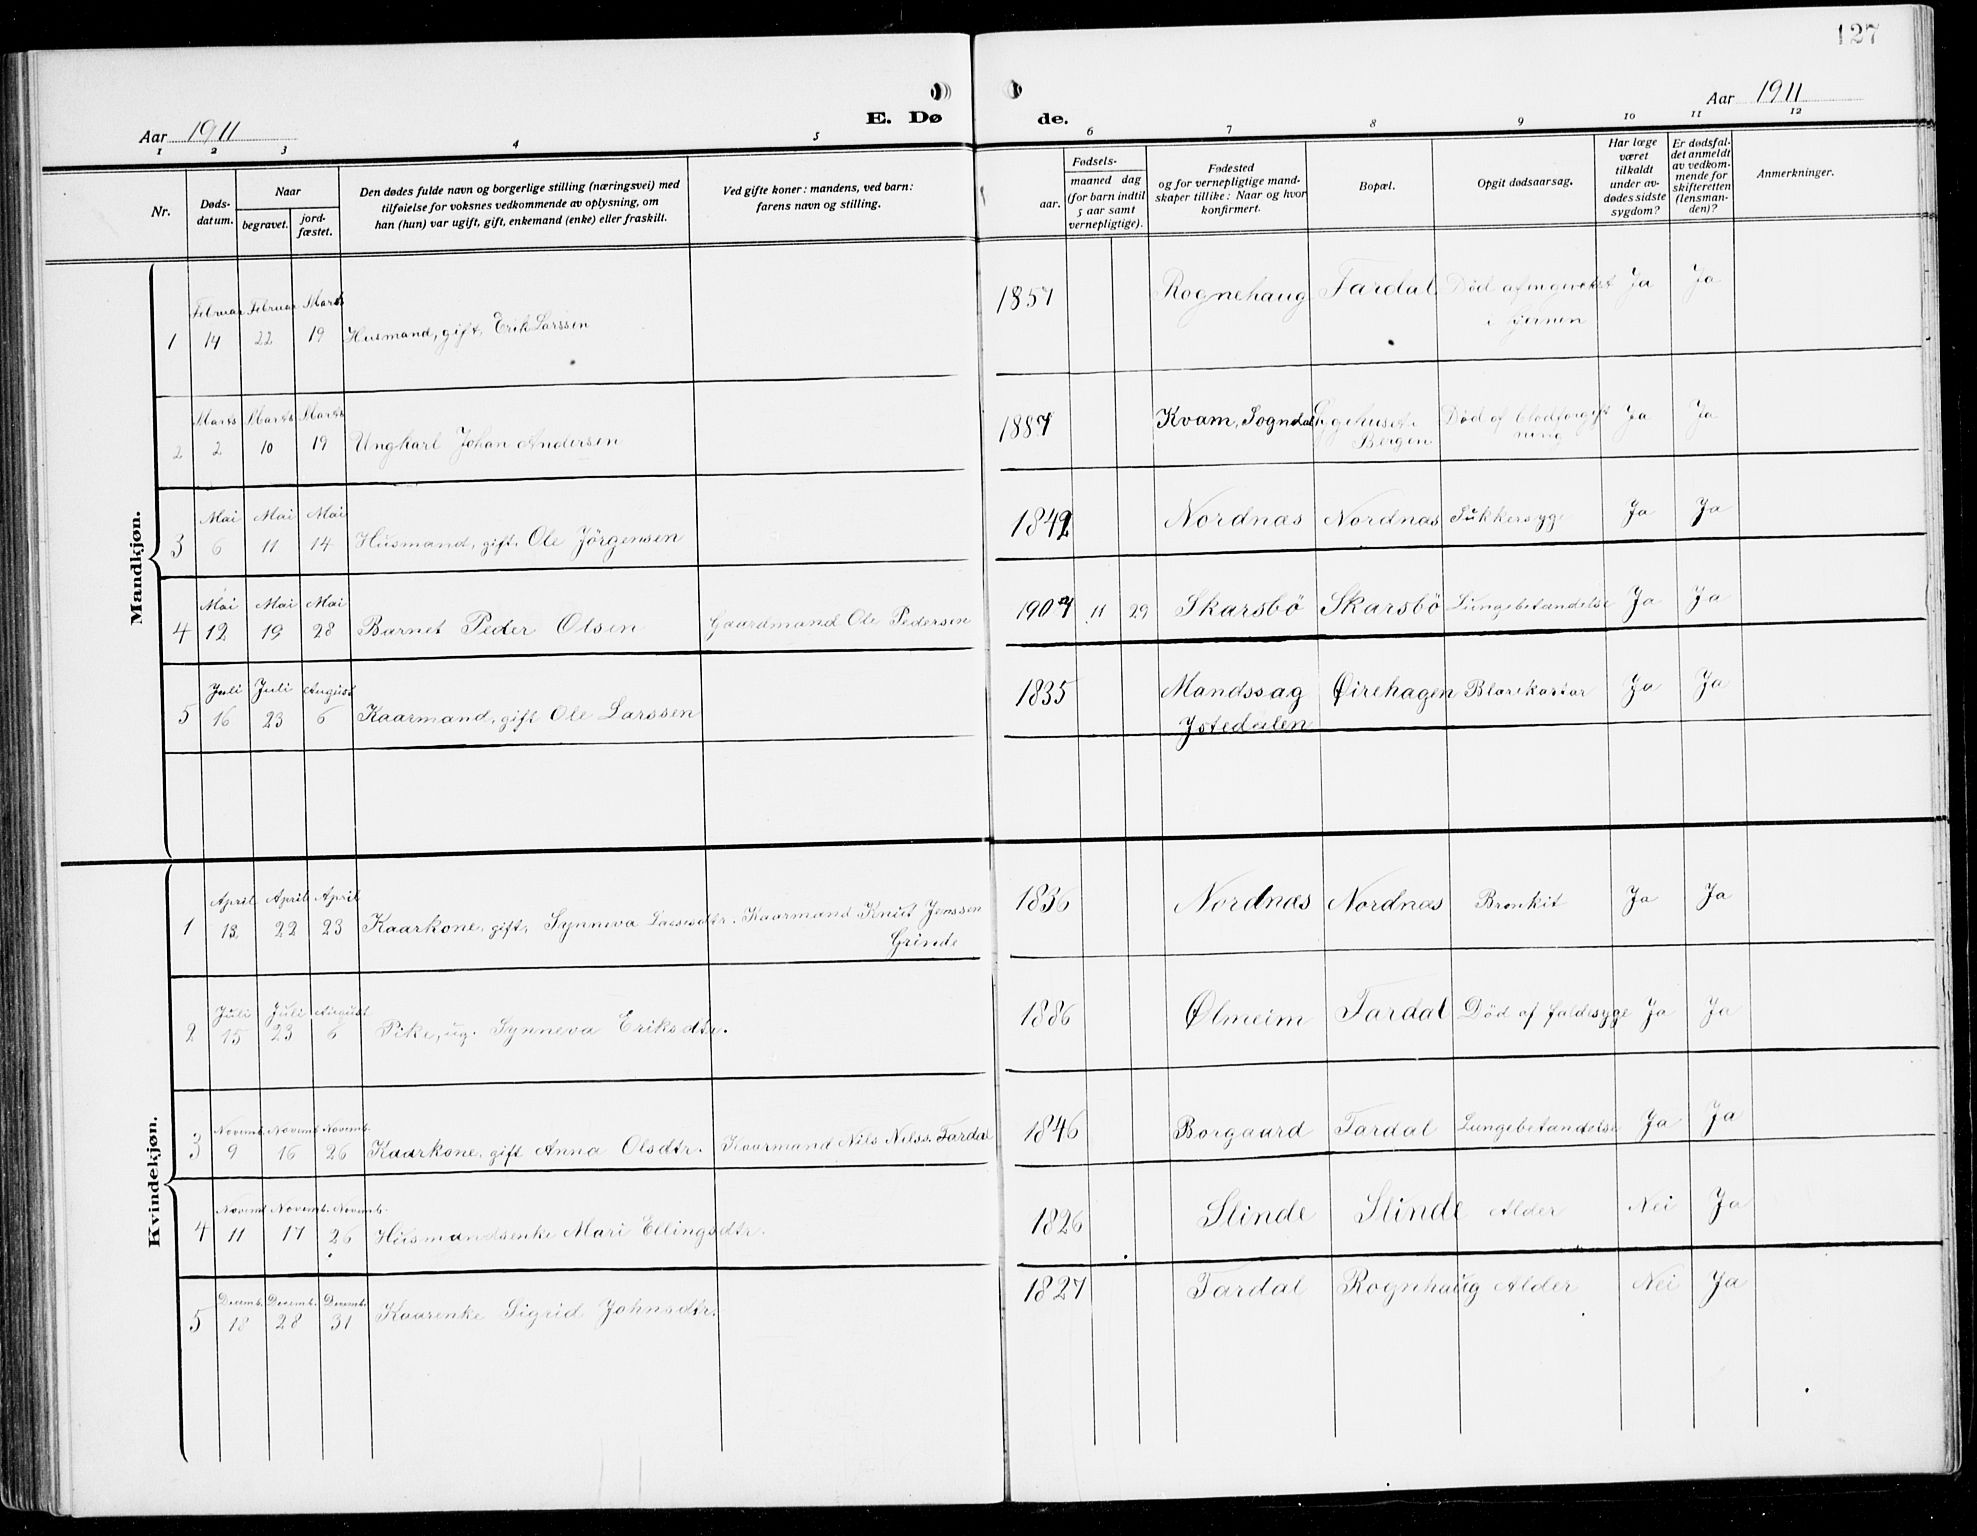 127
Aar 1911
E. Dø
de.
Aar 1911
1 2 3 4 5 6 7 8 9 10 11 12
Nr.
Døds-
datum.
Naar
begravet.
jord-
fæstet.
Den dødes fulde navn og borgerlige stilling (næringsvei) med
tilføielse for voksnes vedkommende av oplysning, om
han (hun) var ugift, gift, enkemand (enke) eller fraskilt.
Ved gifte koner: mandens, ved barn:
farens navn og stilling.
Fødsels-
aar.
maaned dag
(for barn indtil
5 aar samt
vernepligtige).
Fødested
og for vernepligtige mand-
skaper tillike: Naar og hvor
konfirmert.
Bopæl.
Opgit dødsaarsag.
Har læge
været
tilkaldt
under av-
dødes sidste
sygdom?
Er dødsfal-
det anmeldt
av vedkom-
mende for
skifteretten
(lensman-
den)?
Anmerkninger.
Mandkjøn.
1 Februar 14 Februar 22 Marts 19 Husmand, gift, Erik Larssen 1857 Rognehaug Fardal Død af
i hjernen Ja Ja
2 Marts 2 Marts 10 Marts 19 Ungkarl Johan Andersen 1887 Kvam, Sogndal Sygehuset
Bergen Død af Blodforgift
ning Ja Ja
3 Mai 6 Mai 11 Mai 14 Husmand, gift, Ole Jörgensen 1842 Nordnæs Nordnæs Sukkersyge Ja Ja
4 Mai 12 Mai 19 Mai 28 Barnet Peder Olsen Gaardmand Ole Pedersen 1907 11 29 Skarsbö Skarsbö Lungebetændelse Ja Ja
5 Juli 16 Juli 23 August 6 Kaarmand, gift Ole Larssen 1835 Mandssag
Jstedalen Øirehagen Blærekatar Ja Ja
Kvindekjøn.
1 April 13 April 22 April 23 Kaarkone, gift, Synneva Larsdtr. Kaarmand Knut Jenssen
Grinde 1836 Nordnæs Nordnæs Bronkit Ja Ja
2 Juli 15 Juli 23 August 6 Pike, ug. Synneva Eriksdtr. 1886 Ølmeim Fardal Död af faldesyge Ja Ja
3 Novemb. 9 Novemb. 16 Novemb. 26 Kaarkone, gift Anna Olsdtr. Kaarmand Nils Nilss. Fardal 1846 Borgaard Fardal Lungebetændelse Ja Ja
4 Novemb. 11 Novemb. 17 Novemb. 26 Husmandsenke Mari Ellingsdtr. 1826 Slinde Slinde Alder Nei Ja
5 Decemb. 18 Decemb. 28 Decemb. 31 Kaarenke Sigrid Johnsdtr. 1827 Fardal Rognhaug Alder Nei Ja